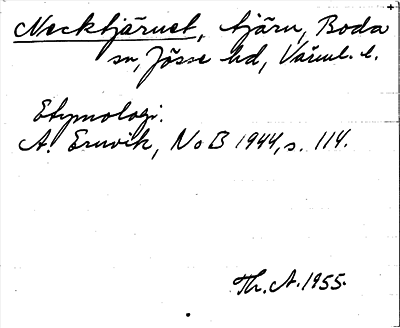 Necktjärnet, tjärn, Boda
sn, Jösse hd, Värml. l.
Etymologi.
A. Ernvik, NoB 1944, s. 114.
Th. A. 1955.